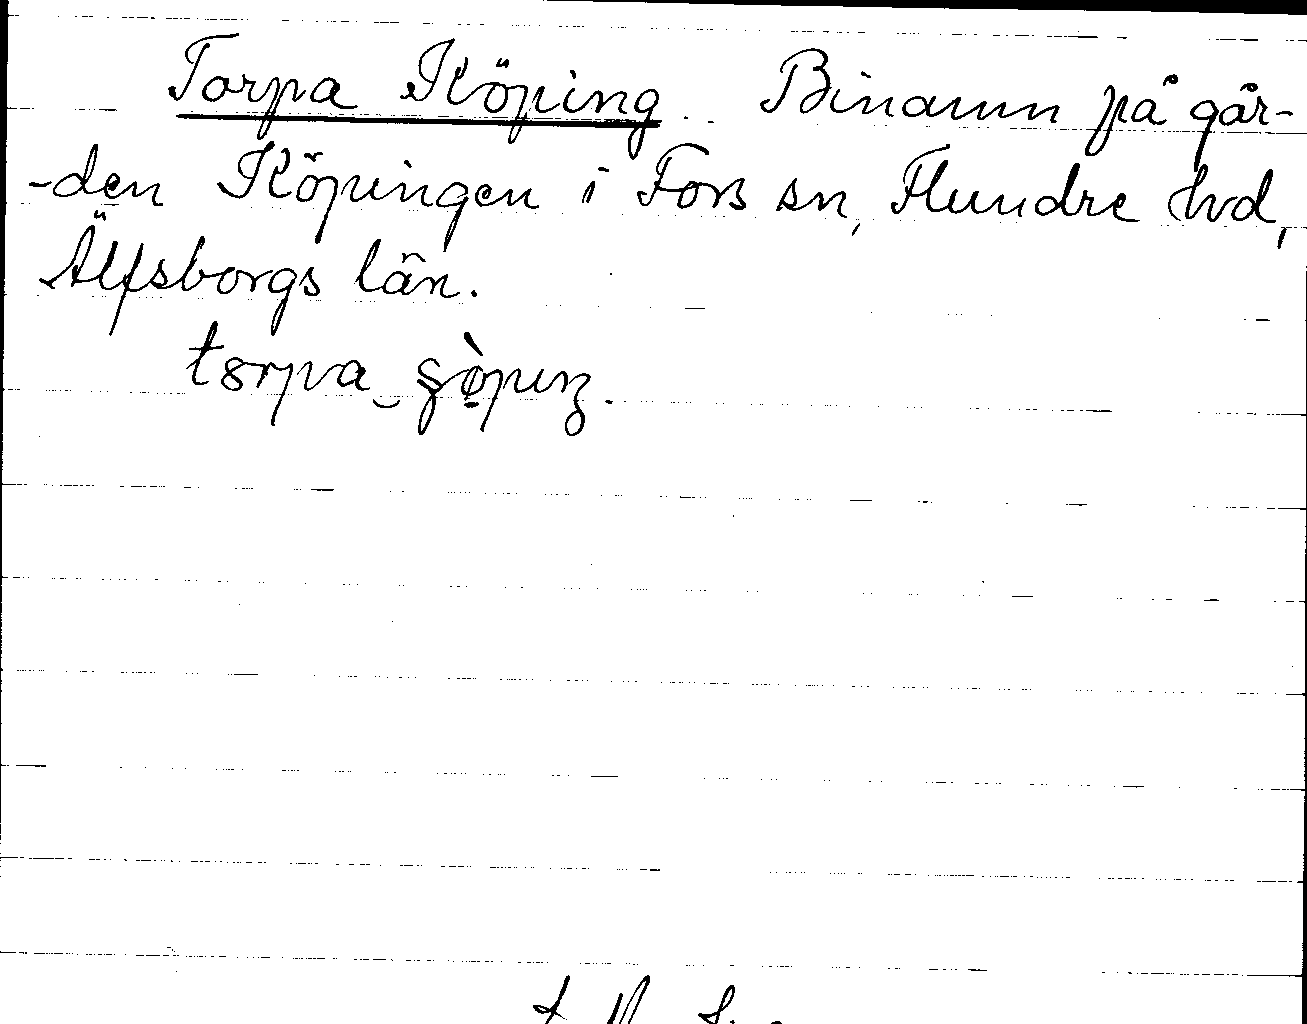 Torpa Köping Binamn på går-
-den Köpingen i Fors sn, Flundre hd,
Älfsborgs län.